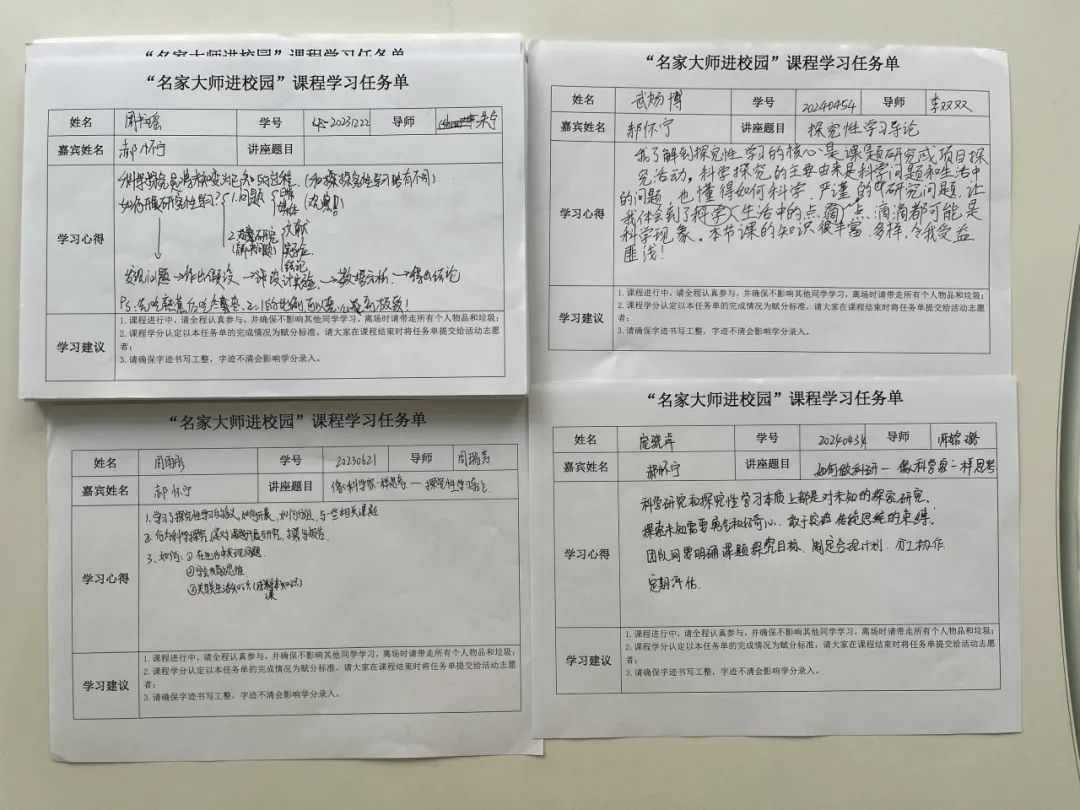 “名家大师进校园”课程学习任务单
“名家大师进校园”课程学习任务单
姓名 学号 20231222 导师
嘉宾姓名 郝怀宁 讲座题目
学习心得
科学探究是将未知变为已知的过程（和探究性学习略有不同）
如何开展研究性学习? 1.问题
（观察）
2. 研究 文献
（解决问题） 实验
结论
发现问题→作出假设→设计实验→数据分析→得出结论
学习建议
1.课程进行中，请全程认真参与，并确保不影响其他同学学习，离场时请带走所有个人物品和垃圾；
2.课程学分认定以本任务单的完成情况为赋分标准，请大家在课程结束时将任务单提交给活动志愿者；
3.请确保字迹书写工整，字迹不清会影响学分录入。
“名家大师进校园”课程学习任务单
姓名 武炀博 学号 20240454 导师 李双双
嘉宾姓名 郝怀宁 讲座题目 探究性学习导论
学习心得
我了解到探究性学习的核心是课题研究或项目探
究活动，科学探究的主要由来是科学问题和生活中
的问题，也懂得如何科学、严谨的研究问题，让
我体会到了科学，生活中的点点滴滴都可能是
科学现象。本节课的知识很丰富、多样，令我受益
匪浅！
学习建议
1.课程进行中，请全程认真参与，并确保不影响其他同学学习，离场时请带走所有个人物品和垃圾；
2.课程学分认定以本任务单的完成情况为赋分标准，请大家在课程结束时将任务单提交给活动志愿
者；
3.请确保字迹书写工整，字迹不清会影响学分录入。
“名家大师进校园”课程学习任务单
姓名 周雨彤 学号 20230621 导师 周瑞芳
嘉宾姓名 郝怀宁 讲座题目 像科学家一样思考——探究性学习导论
学习心得
1.学习了探究性学习的含义，如何开展，如何分组，与一些相关课题
2.何为科学探究，是对课题开展研究，撰写报告
3.如何：①在生活中发现问题
②学会发散思维
③关联生活知识点（或课本知识）
学习建议
1.课程进行中，请全程认真参与，并确保不影响其他同学学习，离场时请带走所有个人物品和垃圾；
2.课程学分认定以本任务单的完成情况为赋分标准，请大家在课程结束时将任务单提交给活动志愿
者；
3.请确保字迹书写工整，字迹不清会影响学分录入。
“名家大师进校园”课程学习任务单
姓名 学号 20240434 导师
嘉宾姓名 郝怀宁 讲座题目 如何做科研—像科学家一样思考
学习心得
科学研究和探究性学习本质上都是对未知的探索研究。
探索未知需要勇气和好奇心，敢于突破传统思维的束缚。
团队间要明确课题探究目标、制定合理计划、分工协作
定期评估.
学习建议
1.课程进行中，请全程认真参与，并确保不影响其他同学学习，离场时请带走所有个人物品和垃圾；
2.课程学分认定以本任务单的完成情况为赋分标准，请大家在课程结束时将任务单提交给活动志愿
者；
3.请确保字迹书写工整，字迹不清会影响学分录入。